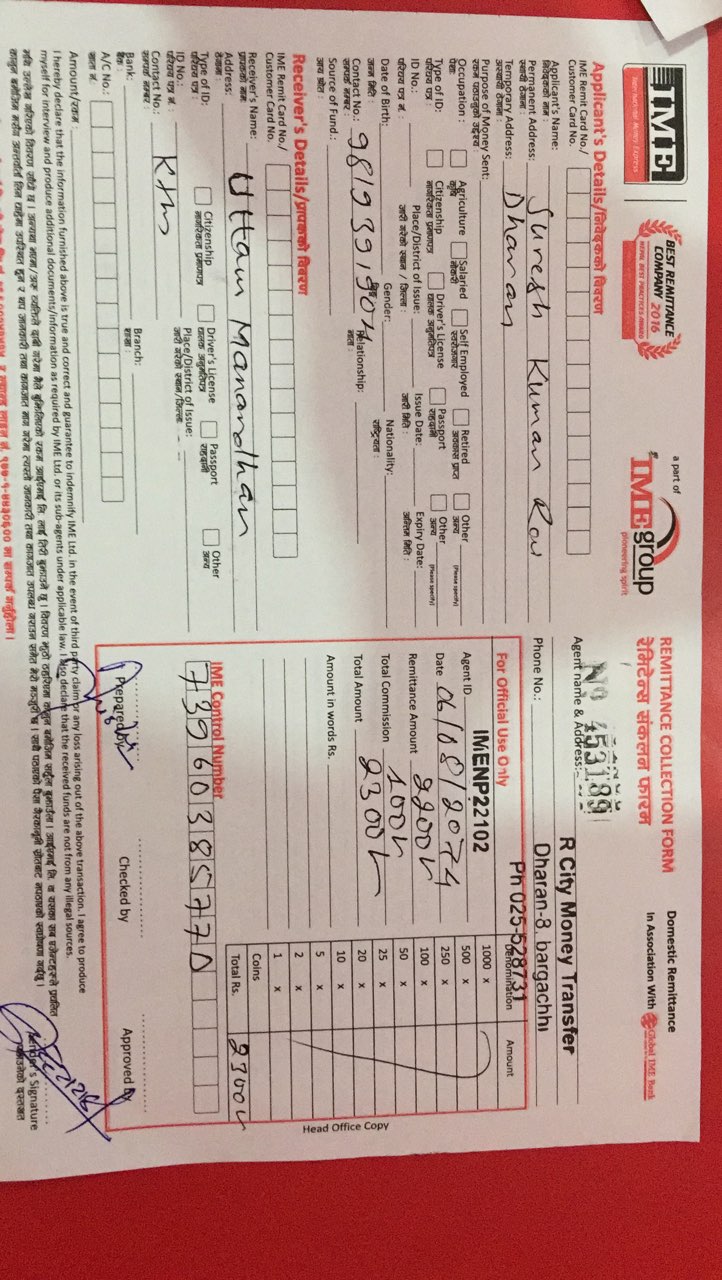 IME
Ison Nuktchar Money Express
BEST REMITTANCE
COMPANY 2016
NEPAL BEST PRACTICES AWARD
a part of
IME group
pioneering spirit
REMITTANCE COLLECTION FORM
रेमिटेन्स संकलन फारम
Domestic Remittance
In Association With Global IME Bank
No 453189
Agent name & Address:
R City Money Transfer
Dharan-8 bargachhi
Phone No.:
Ph 025-528731
Applicant's Details/निवेदकको विवरण
IME Remit Card No./
Customer Card No.
Applicant's Name: Suresh Kumar Rai
निवेदकको नाम:
Permanent Address:
स्थायी ठेगाना:
Temporary Address: Dharan
अस्थायी ठेगाना:
Purpose of Money Sent:
रकम पठाउनुको उद्देश्य
Occupation: Agriculture Salaried Self Employed Retired Other (Please specify)
पेशा कृषि नोकरी स्वरोजगार अवकास प्राप्त अन्य
Type of ID: Citizenship Driver's License Passport Other (Please specify)
परिचय पत्र नागरिकता प्रमाणपत्र चालक अनुमतिपत्र राहदानी अन्य
ID No.: Place/District of Issue: Issue Date: Expiry Date:
परिचय पत्र नं. : जारी गरेको स्थान / जिल्ला: जारी मिति : अन्तिम मिति :
Date of Birth: Gender: Nationality:
जन्म मिति: लिङ्ग राष्ट्रियता:
Contact No.: 9819391904 Relationship:
सम्पर्क नम्बर: नाता:
Source of Fund.:
आय श्रोत
Receiver's Details/प्रापकको विवरण
IME Remit Card No./
Customer Card No.
Receiver's Name: Uttam Manandhar
प्रापकको नाम:
Address: Ktm
ठेगाना:
Type of ID: Citizenship Driver's License Passport Other
परिचय पत्र नागरिकता प्रमाणपत्र चालक अनुमतिपत्र राहदानी अन्य
ID No.: Place/District of Issue:
परिचय पत्र नं. जारी गरेको स्थान/जिल्ला:
Contact No.:
सम्पर्क नम्बर:
Bank: Branch:
बैंक: शाखा:
A/C No.:
खाता नं.
Amount/रकम
For Official Use Only
Agent ID IMENP22102
Date 06/08/2074
Remittance Amount 2200/-
Total Commission 100/-
Total Amount 2300/-
Amount in words Rs.
Denomination Amount
1000 x
500 x
250 x
100 x
50 x
25 x
20 x
10 x
5 x
2 x
1 x
Coins
Total Rs. 2300/-
IME Control Number
73960385770
Prepared by Checked by Approved by
Head Office Copy
I hereby declare that the information furnished above is true and correct and guarantee to indemnify IME Ltd. in the event of third party claim or any loss arising out of the above transaction. I agree to produce
myself for interview and produce additional documents/information as required by IME Ltd. or its sub-agents under applicable law. I also declare that the received funds are not from any illegal sources.
Sender's Signature
पठाउनेको दस्तखत